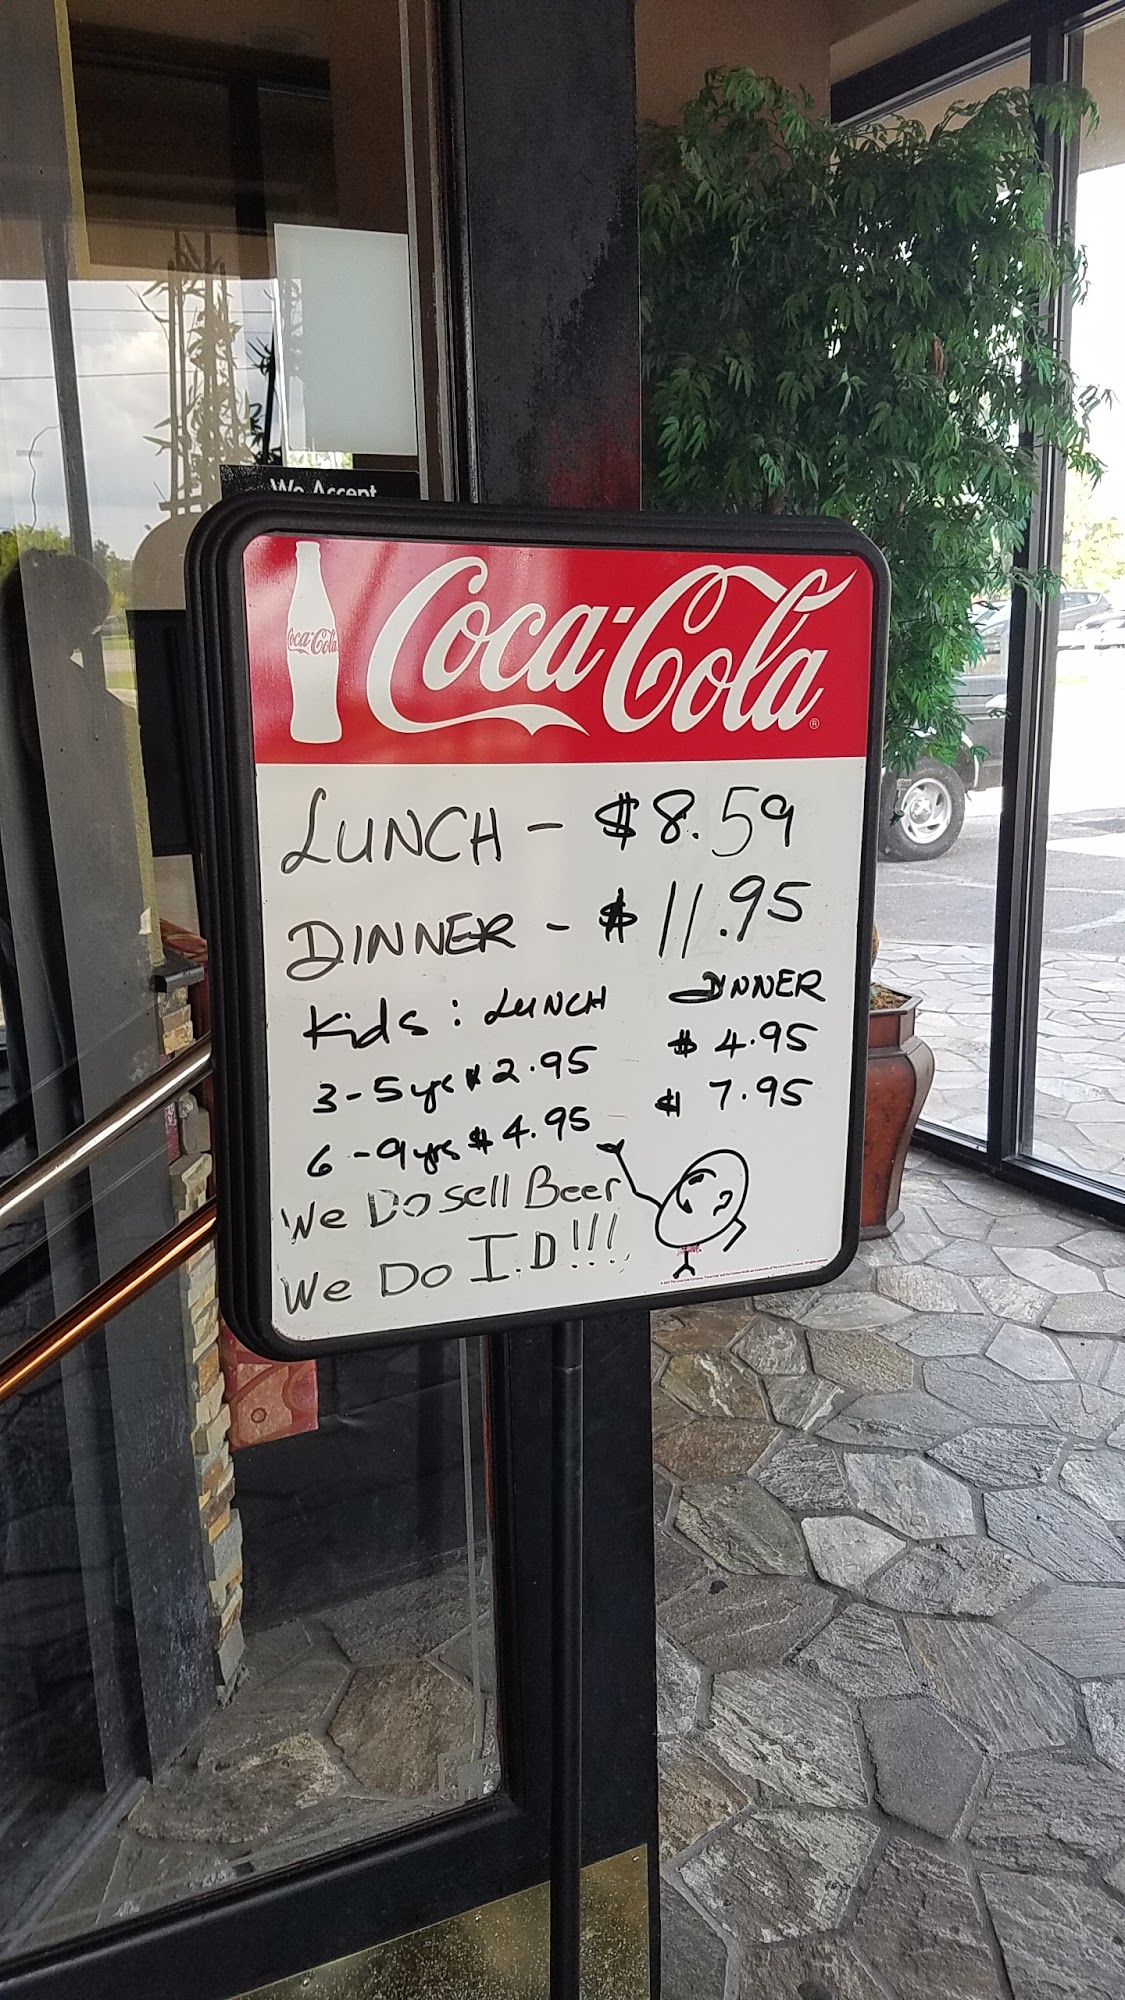 We Accept
Coca-Cola
Coca-Cola®
LUNCH - $8.59
DINNER - $11.95
Kids: LUNCH DINNER
3-5yrs $2.95 $4.95
6-9yrs $4.95 $7.95
We Do sell Beer
We Do I.D!!!